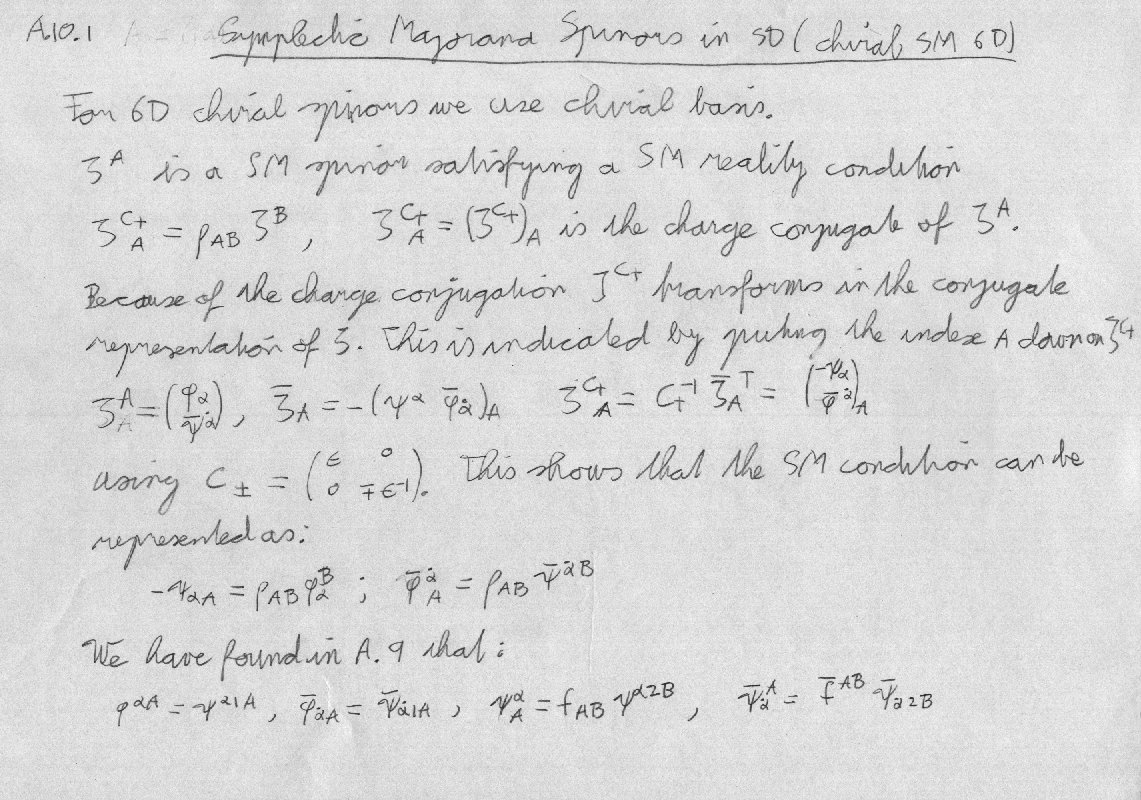 A.10.1 Symplectic Majorana Spinors in 5D (chiral SM 6D)
For 6D chiral spinors we use chiral basis.
ζ^A is a SM spinor satisfying a SM reality condition
ζ^{C+}_A = ρ_{AB} ζ^B, ζ^{C+}_A = (ζ^{C+})_A is the charge conjugate of ζ^A.
Because of the charge conjugation ζ^{C+} transforms in the conjugate
representation of ζ. This is indicated by putting the index A down on ζ^{C+}
ζ^A = (φ_α ψ̄^α̇), ζ̄_A = -(ψ^α φ̄_α̇)_A ζ^{C+}_A = C_+^{-1} ζ̄_A^T = (-ψ_α φ̄^α̇)_A
using C_± = (ϵ 0 0 ∓ϵ^{-1}). This shows that the SM condition can be
represented as:
-ψ_{αA} = ρ_{AB} φ^B_α ; φ̄^α̇_A = ρ_{AB} ψ̄^{α̇B}
We have found in A.9 that:
φ^{αA} = ψ^{α1A}, φ̄_{α̇A} = ψ̄_{α̇1A}, ψ^α_A = f_{AB} ψ^{α2B}, ψ̄^A_α̇ = f̄^{AB} ψ̄_{α̇2B}